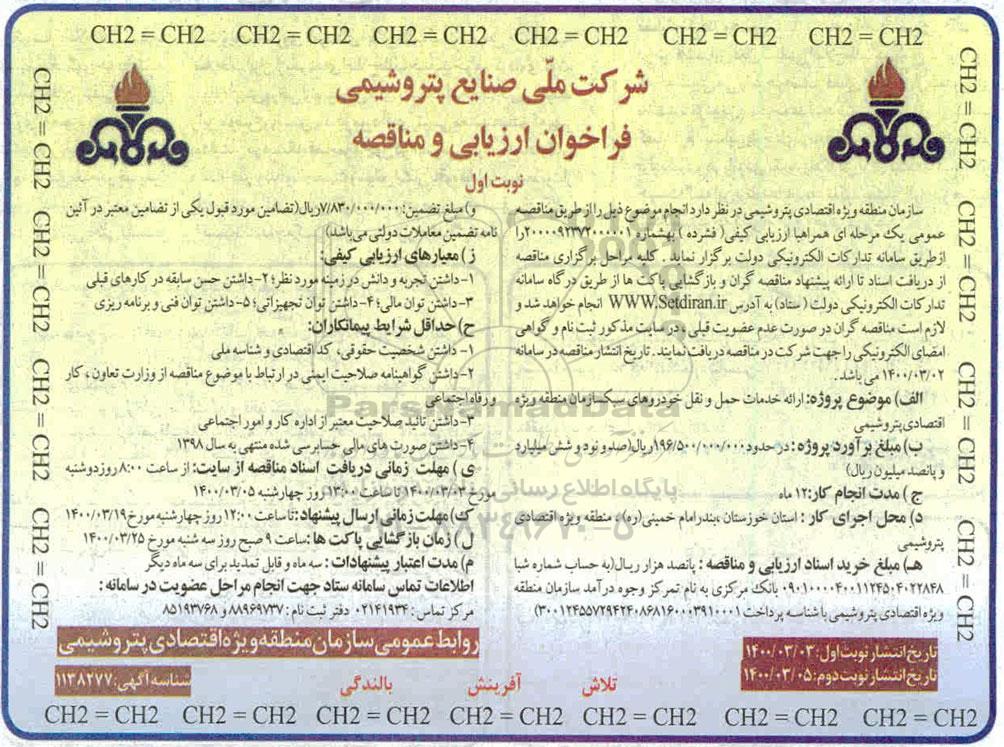 CH2 = CH2 CH2 = CH2 CH2 = CH2 CH2 = CH2 CH2 = CH2 CH2 = CH2
شرکت ملّی صنایع پتروشیمی
فراخوان ارزیابی و مناقصه
نوبت اول
سازمان منطقه ویژه اقتصادی پتروشیمی در نظر دارد انجام موضوع ذیل را از طریق مناقصه
عمومی یک مرحله ای همراه با ارزیابی کیفی( فشرده ) به شماره ۲۰۰۰۰۹۲۳۷۲۰۰۰۰۰۱ را
از طریق سامانه تدارکات الکترونیکی دولت برگزار نماید . کلیه مراحل برگزاری مناقصه
از دریافت اسناد تا ارائه پیشنهاد مناقصه گران و بازگشایی پاکت ها از طریق درگاه سامانه
تدارکات الکترونیکی دولت ( ستاد) به آدرس WWW.Setdiran.ir انجام خواهد شد و
لازم است مناقصه گران در صورت عدم عضویت قبلی ، در سایت مذکور ثبت نام و گواهی
امضای الکترونیکی را جهت شرکت در مناقصه دریافت نمایند . تاریخ انتشار مناقصه در سامانه
۱۴۰۰/۰۳/۰۲ می باشد .
الف) موضوع پروژه: ارائه خدمات حمل و نقل خودروهای سبک سازمان منطقه ویژه
اقتصادی پتروشیمی
ب) مبلغ برآورد پروژه : در حدود ۱۹۶/۵۰۰/۰۰۰/۰۰۰ ریال(صد و نود و شش میلیارد
و پانصد میلیون ریال)
ج ) مدت انجام کار: ۱۲ ماه
د) محل اجرای کار : استان خوزستان ،بندر امام خمینی(ره) ، منطقه ویژه اقتصادی
پتروشیمی
هـ) مبلغ خرید اسناد ارزیابی و مناقصه : پانصد هزار ریال(به حساب شماره شبا
۰۹۰۱۰۰۰۰۴۰۰۱۱۲۴۵۰۴۰۲۲۸۴۸ بانک مرکزی به نام تمرکز وجوه درآمد سازمان منطقه
ویژه اقتصادی پتروشیمی با شناسه پرداخت ۳۰۰۱۲۴۵۵۷۲۹۴۲۴۰۸۶۸۱۶۰۰۰۳۹۱۰۰۰۱)
و) مبلغ تضمین: ۷/۸۳۰/۰۰۰/۰۰۰ریال(تضامین مورد قبول یکی از تضامین معتبر در آئین
نامه تضمین معاملات دولتی می باشد)
ز ) معیارهای ارزیابی کیفی:
۱-داشتن تجربه و دانش در زمینه مورد نظر؛ ۲-داشتن حسن سابقه در کارهای قبلی
۳-داشتن توان مالی؛ ۴-داشتن توان تجهیزاتی؛ ۵-داشتن توان فنی و برنامه ریزی
ح) حداقل شرایط پیمانکاران:
۱- داشتن شخصیت حقوقی، کد اقتصادی و شناسه ملی
۲-داشتن گواهینامه صلاحیت ایمنی در ارتباط با موضوع مناقصه از وزارت تعاون ، کار
و رفاه اجتماعی
۳-داشتن تائید صلاحیت معتبر از اداره کار و امور اجتماعی
۴-داشتن صورت های مالی حسابرسی شده منتهی به سال ۱۳۹۸
ی ) مهلت زمانی دریافت اسناد مناقصه از سایت: از ساعت ۸:۰۰ روز دوشنبه
مورخ ۱۴۰۰/۰۳/۰۳ تا ساعت ۱۳:۰۰ روز چهارشنبه ۱۴۰۰/۰۳/۰۵
ک) مهلت زمانی ارسال پیشنهاد: تا ساعت ۱۲:۰۰ روز چهارشنبه مورخ ۱۴۰۰/۰۳/۱۹
ل ) زمان بازگشایی پاکت ها : ساعت ۹ صبح روز سه شنبه مورخ ۱۴۰۰/۰۳/۲۵
م) مدت اعتبار پیشنهادات : سه ماه و قابل تمدید برای سه ماه دیگر
اطلاعات تماس سامانه ستاد جهت انجام مراحل عضویت در سامانه :
مرکز تماس : ۰۲۱۴۱۹۳۴ دفتر ثبت نام : ۸۸۹۶۹۷۳۷ و ۸۵۱۹۳۷۶۸
روابط عمومی سازمان منطقه ویژه اقتصادی پتروشیمی
تاریخ انتشار نوبت اول: ۱۴۰۰/۰۳/۰۳
تاریخ انتشار نوبت دوم: ۱۴۰۰/۰۳/۰۵
شناسه آگهی: ۱۱۳۸۲۷۷
تلاش آفرینش بالندگی
CH2 = CH2 CH2 = CH2 CH2 = CH2 CH2 = CH2 CH2 = CH2 CH2 = CH2 CH2 = CH2
CH2 = CH2 CH2 = CH2 CH2 = CH2 CH2 = CH2
CH2 = CH2 CH2 = CH2 CH2 = CH2 CH2 = CH2
ParsNamadData
پایگاه اطلاع رسانی